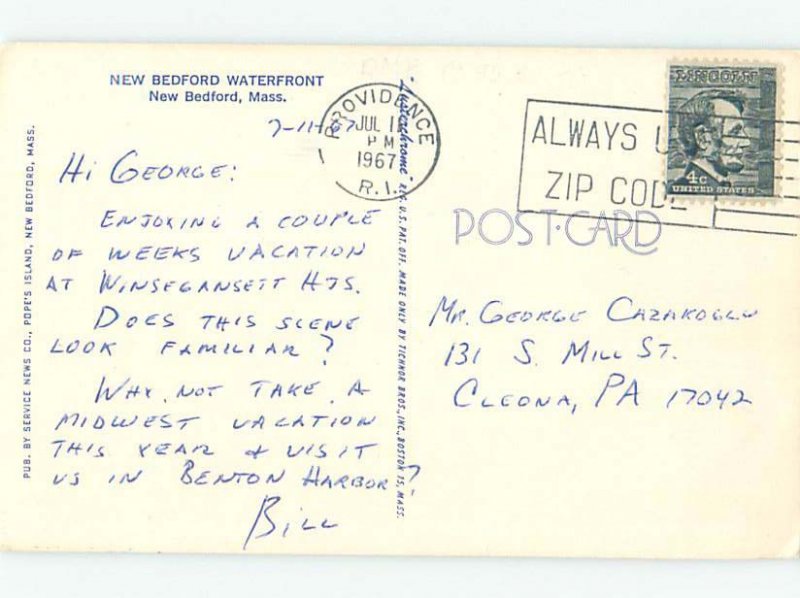 NEW BEDFORD WATERFRONT
New Bedford, Mass.
7-11-67
Hi George:
Enjoying a couple
of weeks vacation
at Winsegansett Hts.
Does this scene
look familiar?
Why not take a
midwest vacation
this year & visit
us in Benton Harbor?
Bill
PUB. BY SERVICE NEWS CO., POPE'S ISLAND, NEW BEDFORD, MASS.
"Lusterchrome" REG. U.S. PAT. OFF. MADE ONLY BY TICHNOR BROS., INC., BOSTON 15, MASS.
PROVIDENCE
JUL 1
PM
1967
R.I.
ALWAYS U
ZIP CODE
LINCOLN
4c
UNITED STATES
POST-CARD
Mr. George Cazakoglu
131 S. Mill St.
Cleona, PA 17042